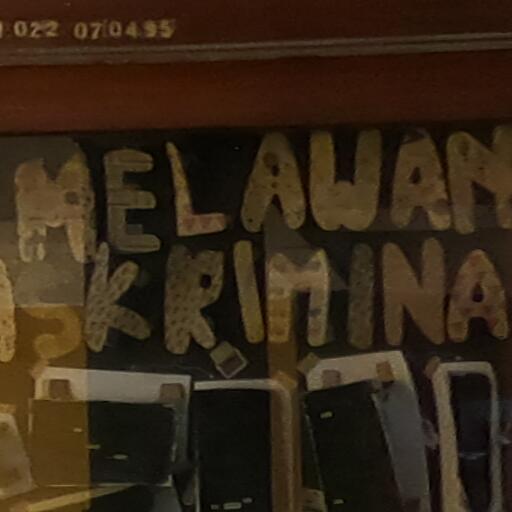 022 07.04.95
MELAWAN
KRIMINA